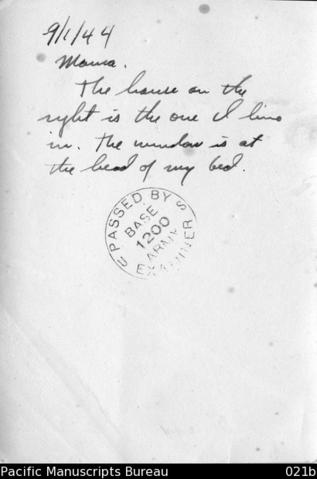 9/1/44
Mama.
The house on the
right is the one I live
in. The window is at
the head of my bed.
PASSED BY
BASE
1200
ARMY
EXAMINER
U S
Pacific Manuscripts Bureau 021b